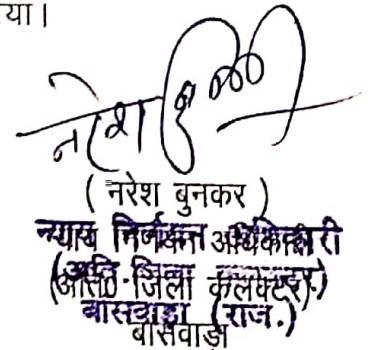 या।
नरेश
( नरेश बुनकर )
न्याय निर्णयन अधिकारी
(अति. जिला कलक्टर)
बांसवाड़ा (राज.)
बांसवाड़ा